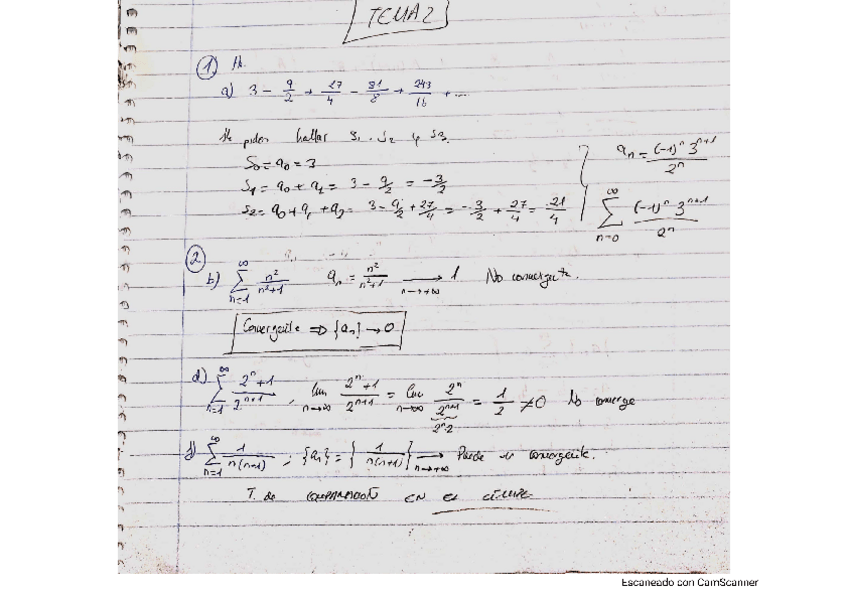 TEMA 2
① 1.
a) 3 - 9/2 + 27/4 - 81/8 + 243/16 + ...
piden hallar S1, S2 y S3.
S0 = a0 = 3
S1 = a0 + a1 = 3 - 9/2 = -3/2
S2 = a0 + a1 + a2 = 3 - 9/2 + 27/4 = -3/2 + 27/4 = 21/4
an = (-1)^n 3^(n+1) / 2^n
∑_{n=0}^{∞} (-1)^n 3^(n+1) / 2^n
②
b) ∑_{n=1}^{∞} n²/(n²+1) an = n²/(n²+1) ⟶_{n→+∞} 1 No convergente.
Convergente ⇒ {an} → 0
d) ∑_{n=1}^{∞} (2^n+1)/2^(n+1), lim_{n→∞} (2^n+1)/2^(n+1) = lim_{n→∞} 2^n/2^(n+1) = 1/2 ≠ 0 No converge
2^n·2
f) ∑_{n=1}^{∞} 1/(n(n+1)); {an} = {1/(n(n+1))} ⟶_{n→+∞} Puede ser convergente.
T. de COMPARACIÓN EN EL LÍMITE
Escaneado con CamScanner